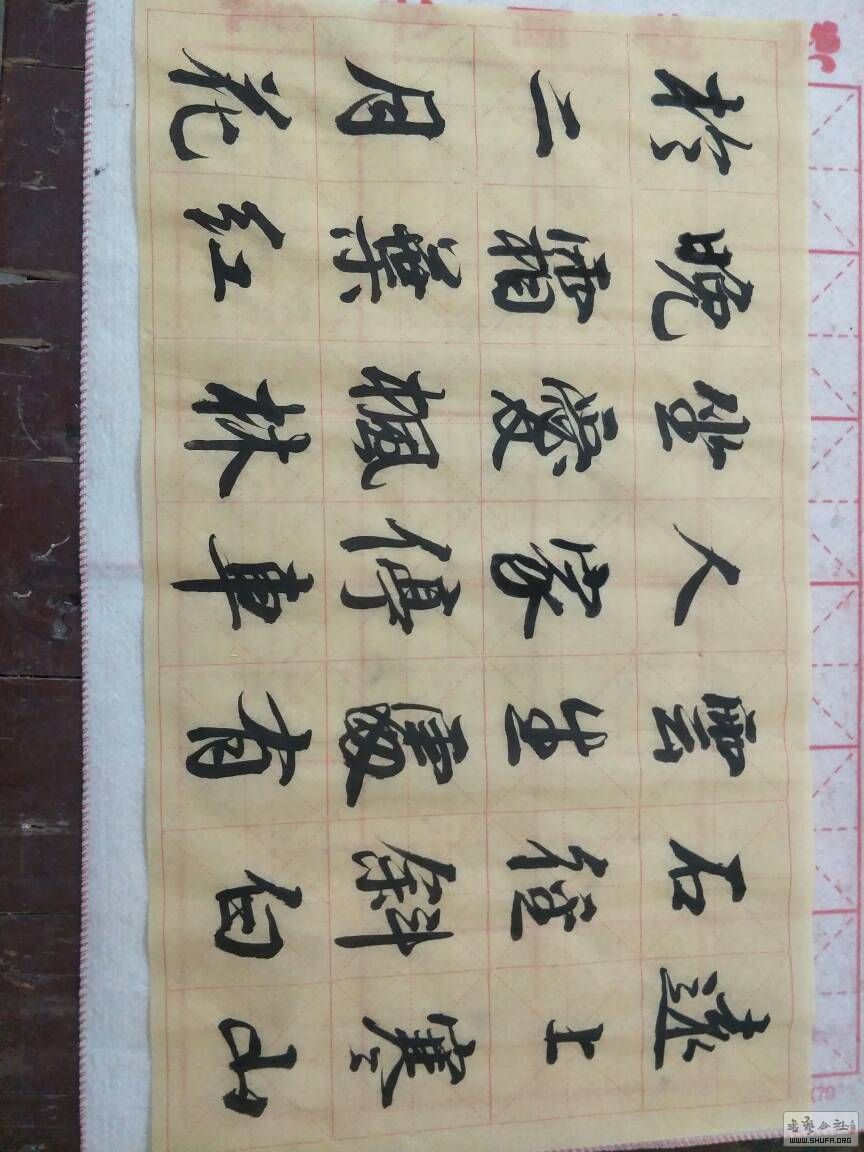 遠上寒山
石徑斜白
雲生處有
人家停車
坐愛楓林
晚霜葉红
於二月花
書藝公社
WWW.SHUFA.ORG